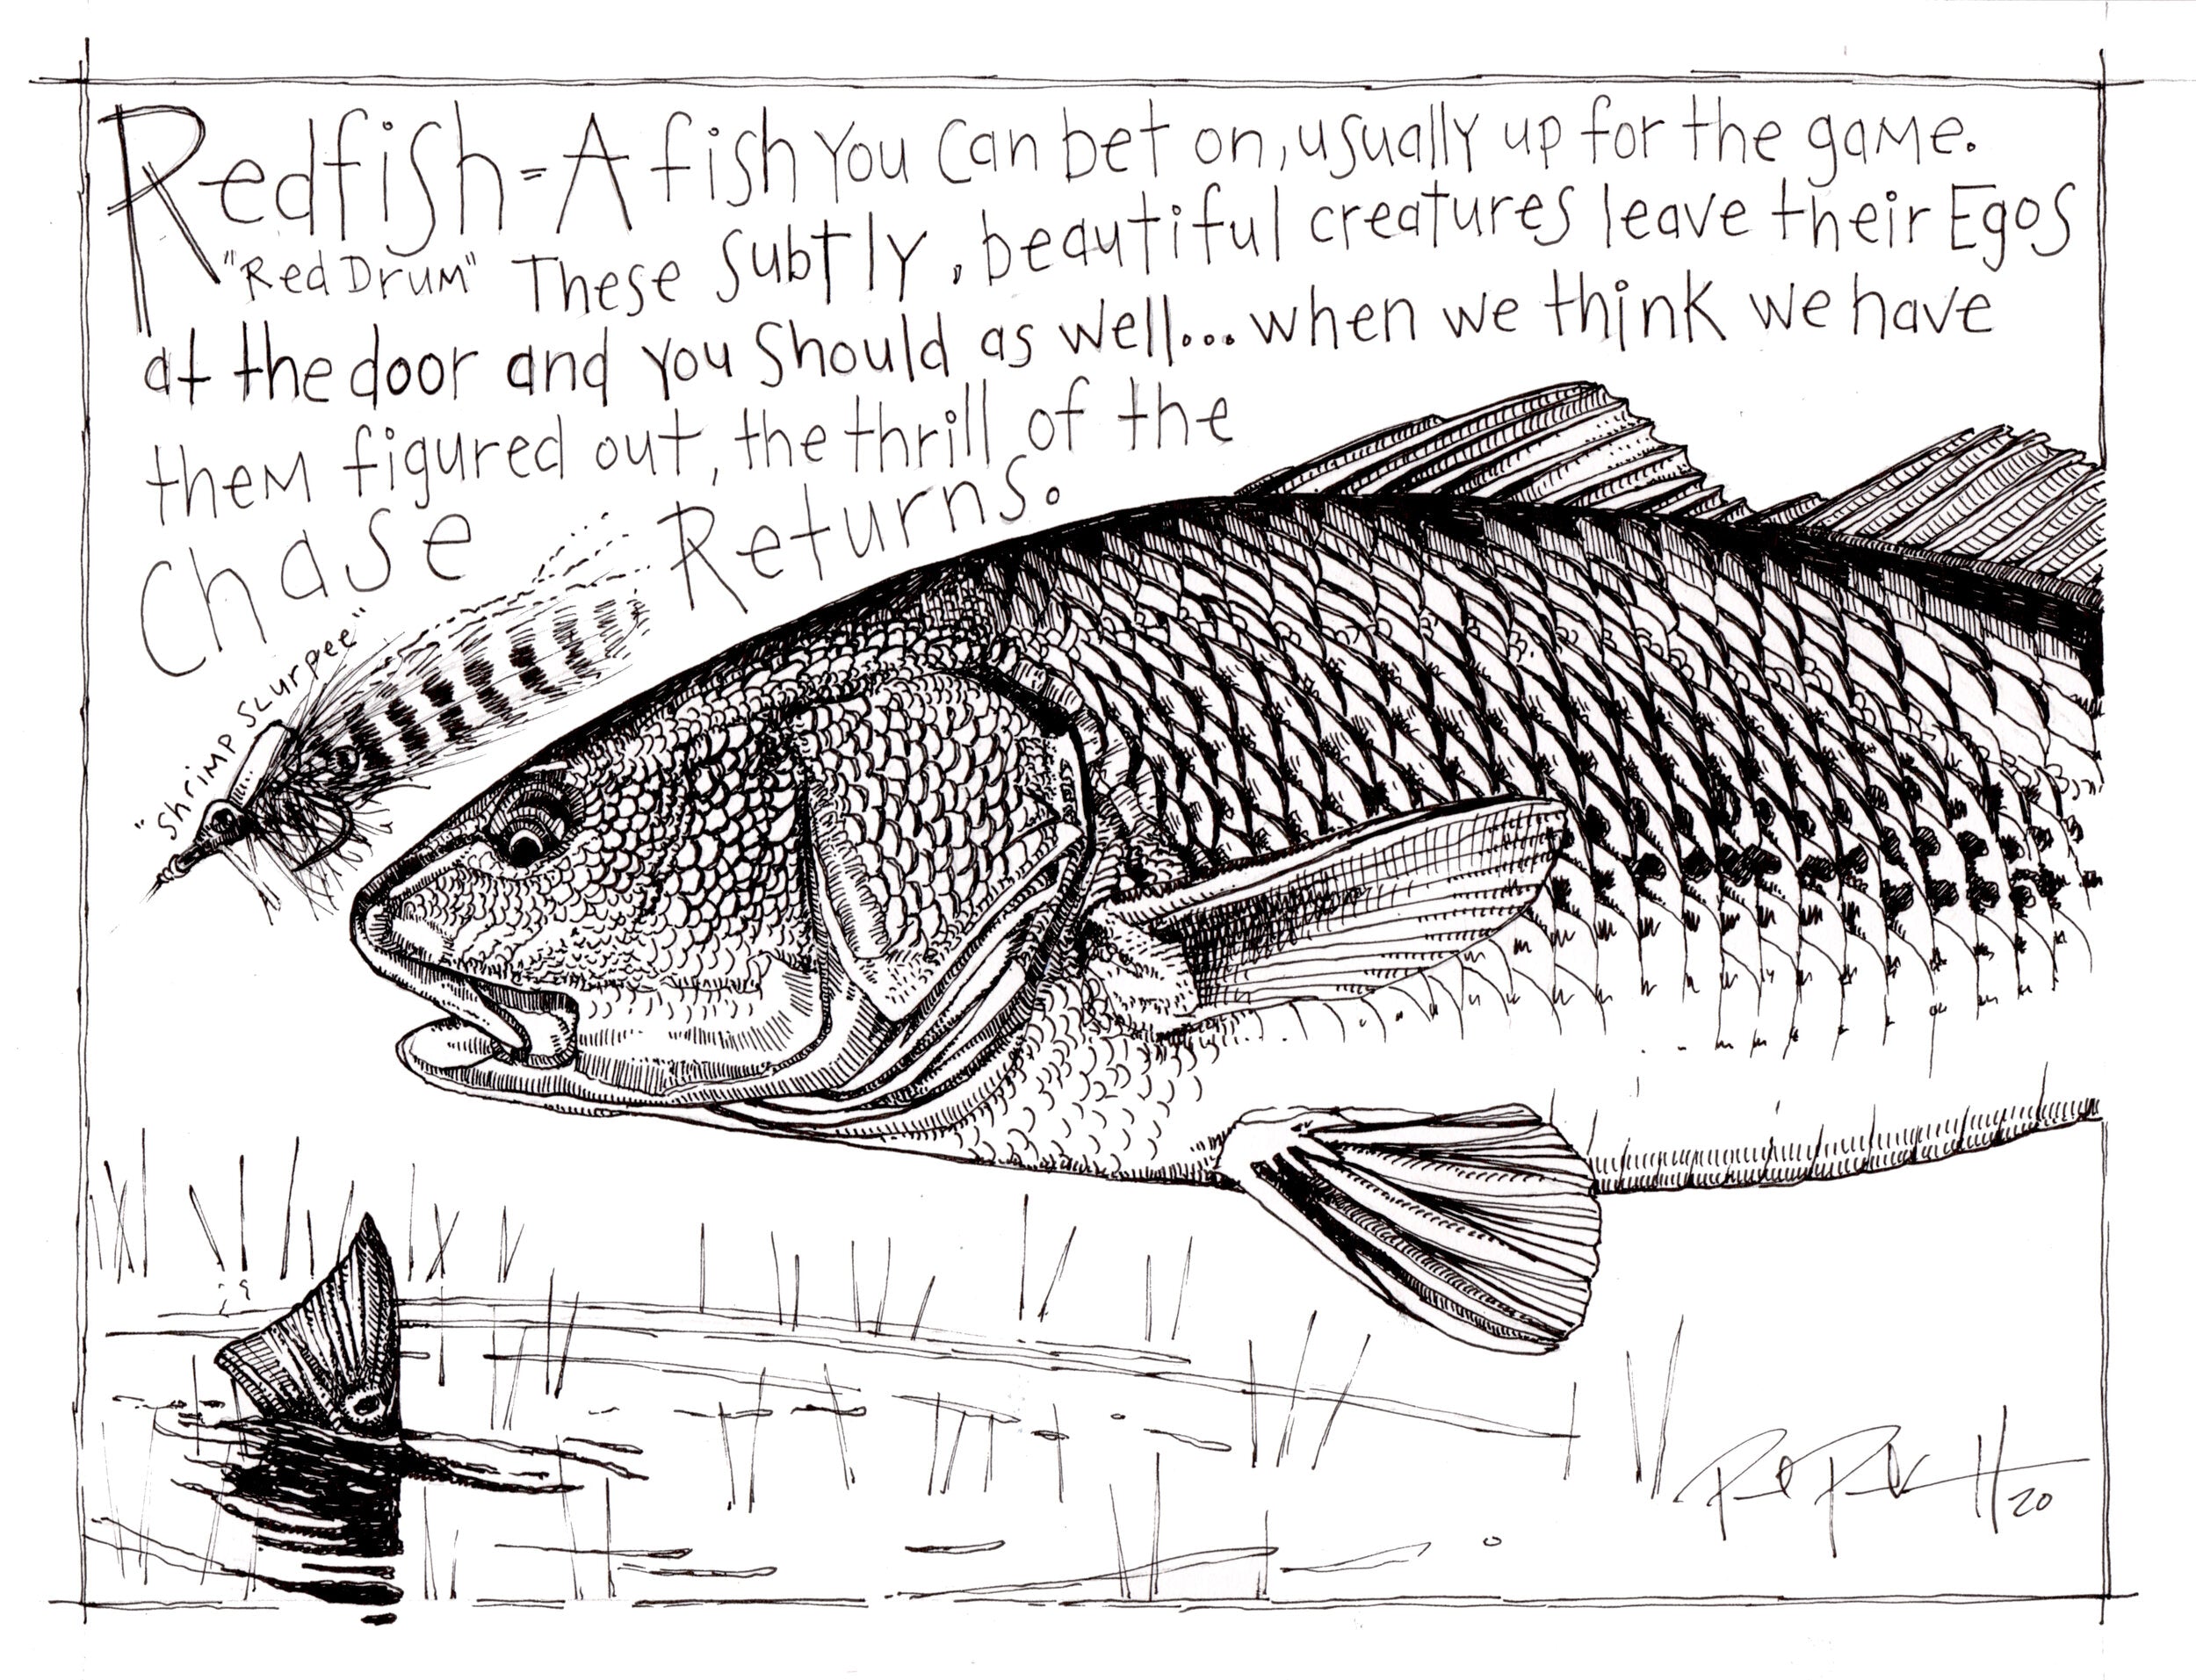 Redfish = A fish you can bet on, usually up for the game.
"Red Drum" These subtly, beautiful creatures leave their Egos
at the door and you should as well... when we think we have
them figured out, the thrill of the
Chase Returns.
"Shrimp Slurpee"
20